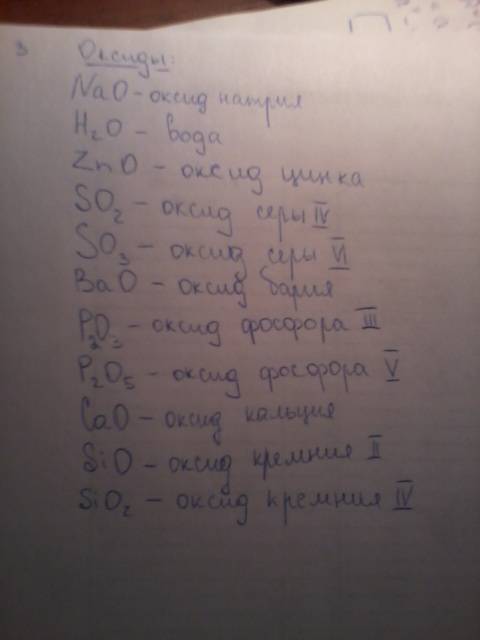 3
Оксиды:
NaO - оксид натрия
H₂O - вода
ZnO - оксид цинка
SO₂ - оксид серы IV
SO₃ - оксид серы VI
BaO - оксид бария
P₂O₃ - оксид фосфора III
P₂O₅ - оксид фосфора V
CaO - оксид кальция
SiO - оксид кремния II
SiO₂ - оксид кремния IV